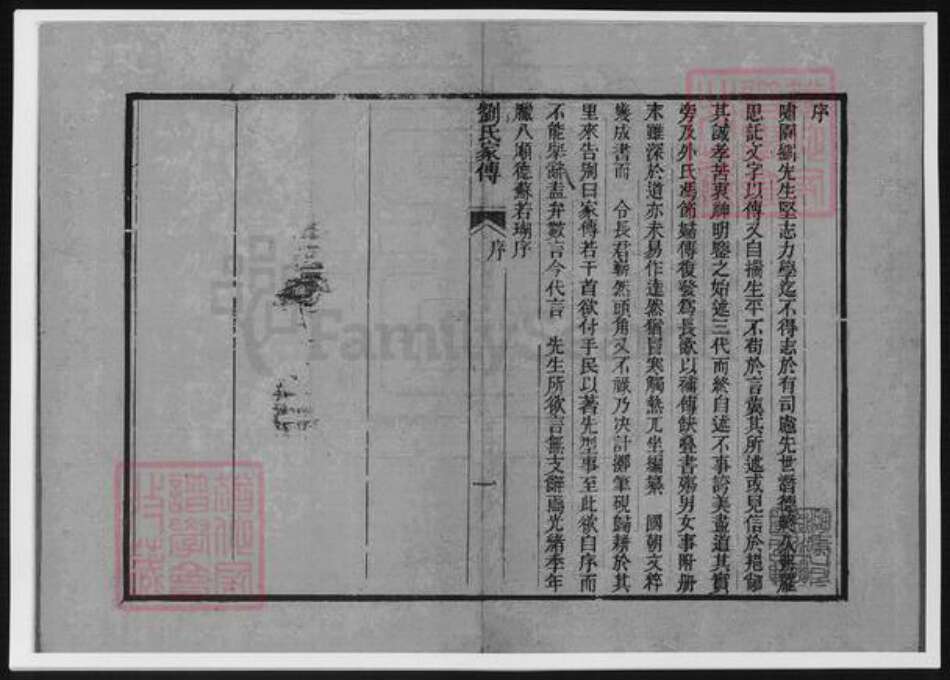 序
園劉先生堅志力學迄不得志於有司慮先世潛德終
思託文字以傳又自揣生平不苟於言冀其所述或見信於
其誠孝苦衷神明鑒之始述三代而終自述不事誇美盡道其實
旁及外氏馮節婦傳復發為長歌以補傳缺疊書殤男女事附册
末雖深於道亦未易作達然猶冒寒觸熱兀坐編纂 國朝文粹
幾成書而 令長君嶄然頭角又不祿乃决計擲筆硯歸耕於其
里來告别曰家傳若干首欲付手民以著先型事至此欲自序而
不能舉辭盍弁數言今代言 先生所欲言無支辭焉光緒季年
臘八順德蘇若瑚序
劉氏家傳 序 一
FamilySearch